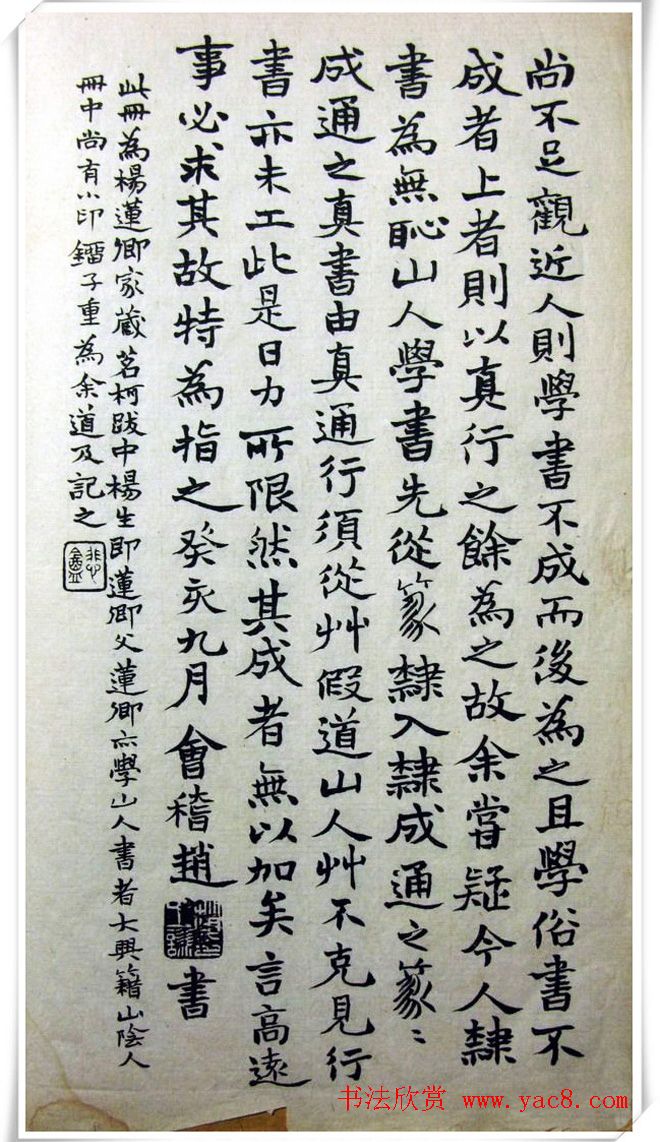 尚不足觀近人則學書不成而後為之且學俗書不
成者上者則以真行之餘為之故余嘗疑今人隸
書為無恥山人學書先從篆隸入隸成通之篆〻
成通之真書由真通行須從艸假道山人艸不克見行
書亦未工此是日力所限然其成者無以加矣言高遠
事必求其故特為指之癸亥九月會稽趙
書
此冊為楊蓮卿家藏茗柯跋中楊生即蓮卿父蓮卿亦學山人書者大興籍山陰人
冊中尚有小印鐂子重為余道及記之
悲盦
书法欣赏 www.yac8.com